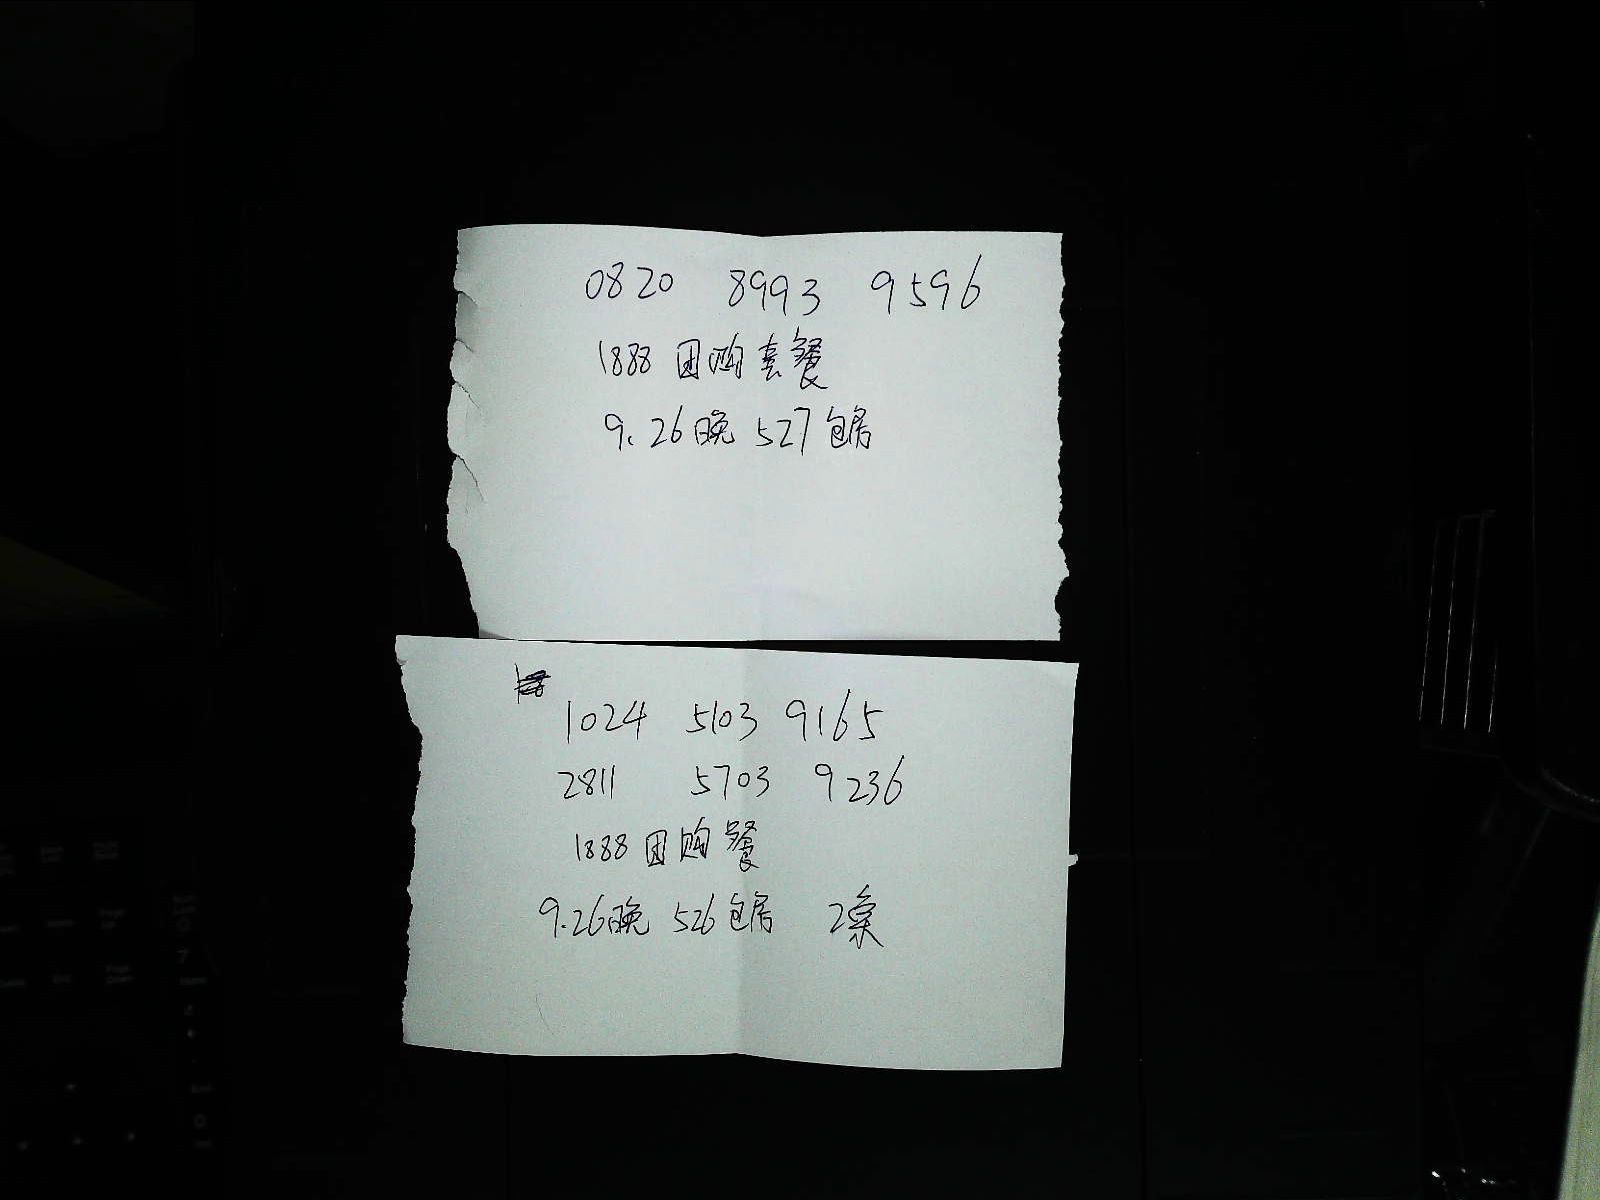 0820 8993 9596
1888 团购套餐
9.26晚 527包房
1024 5103 9165
2811 5703 9236
1888 团购餐
9.26晚 526包房 2条